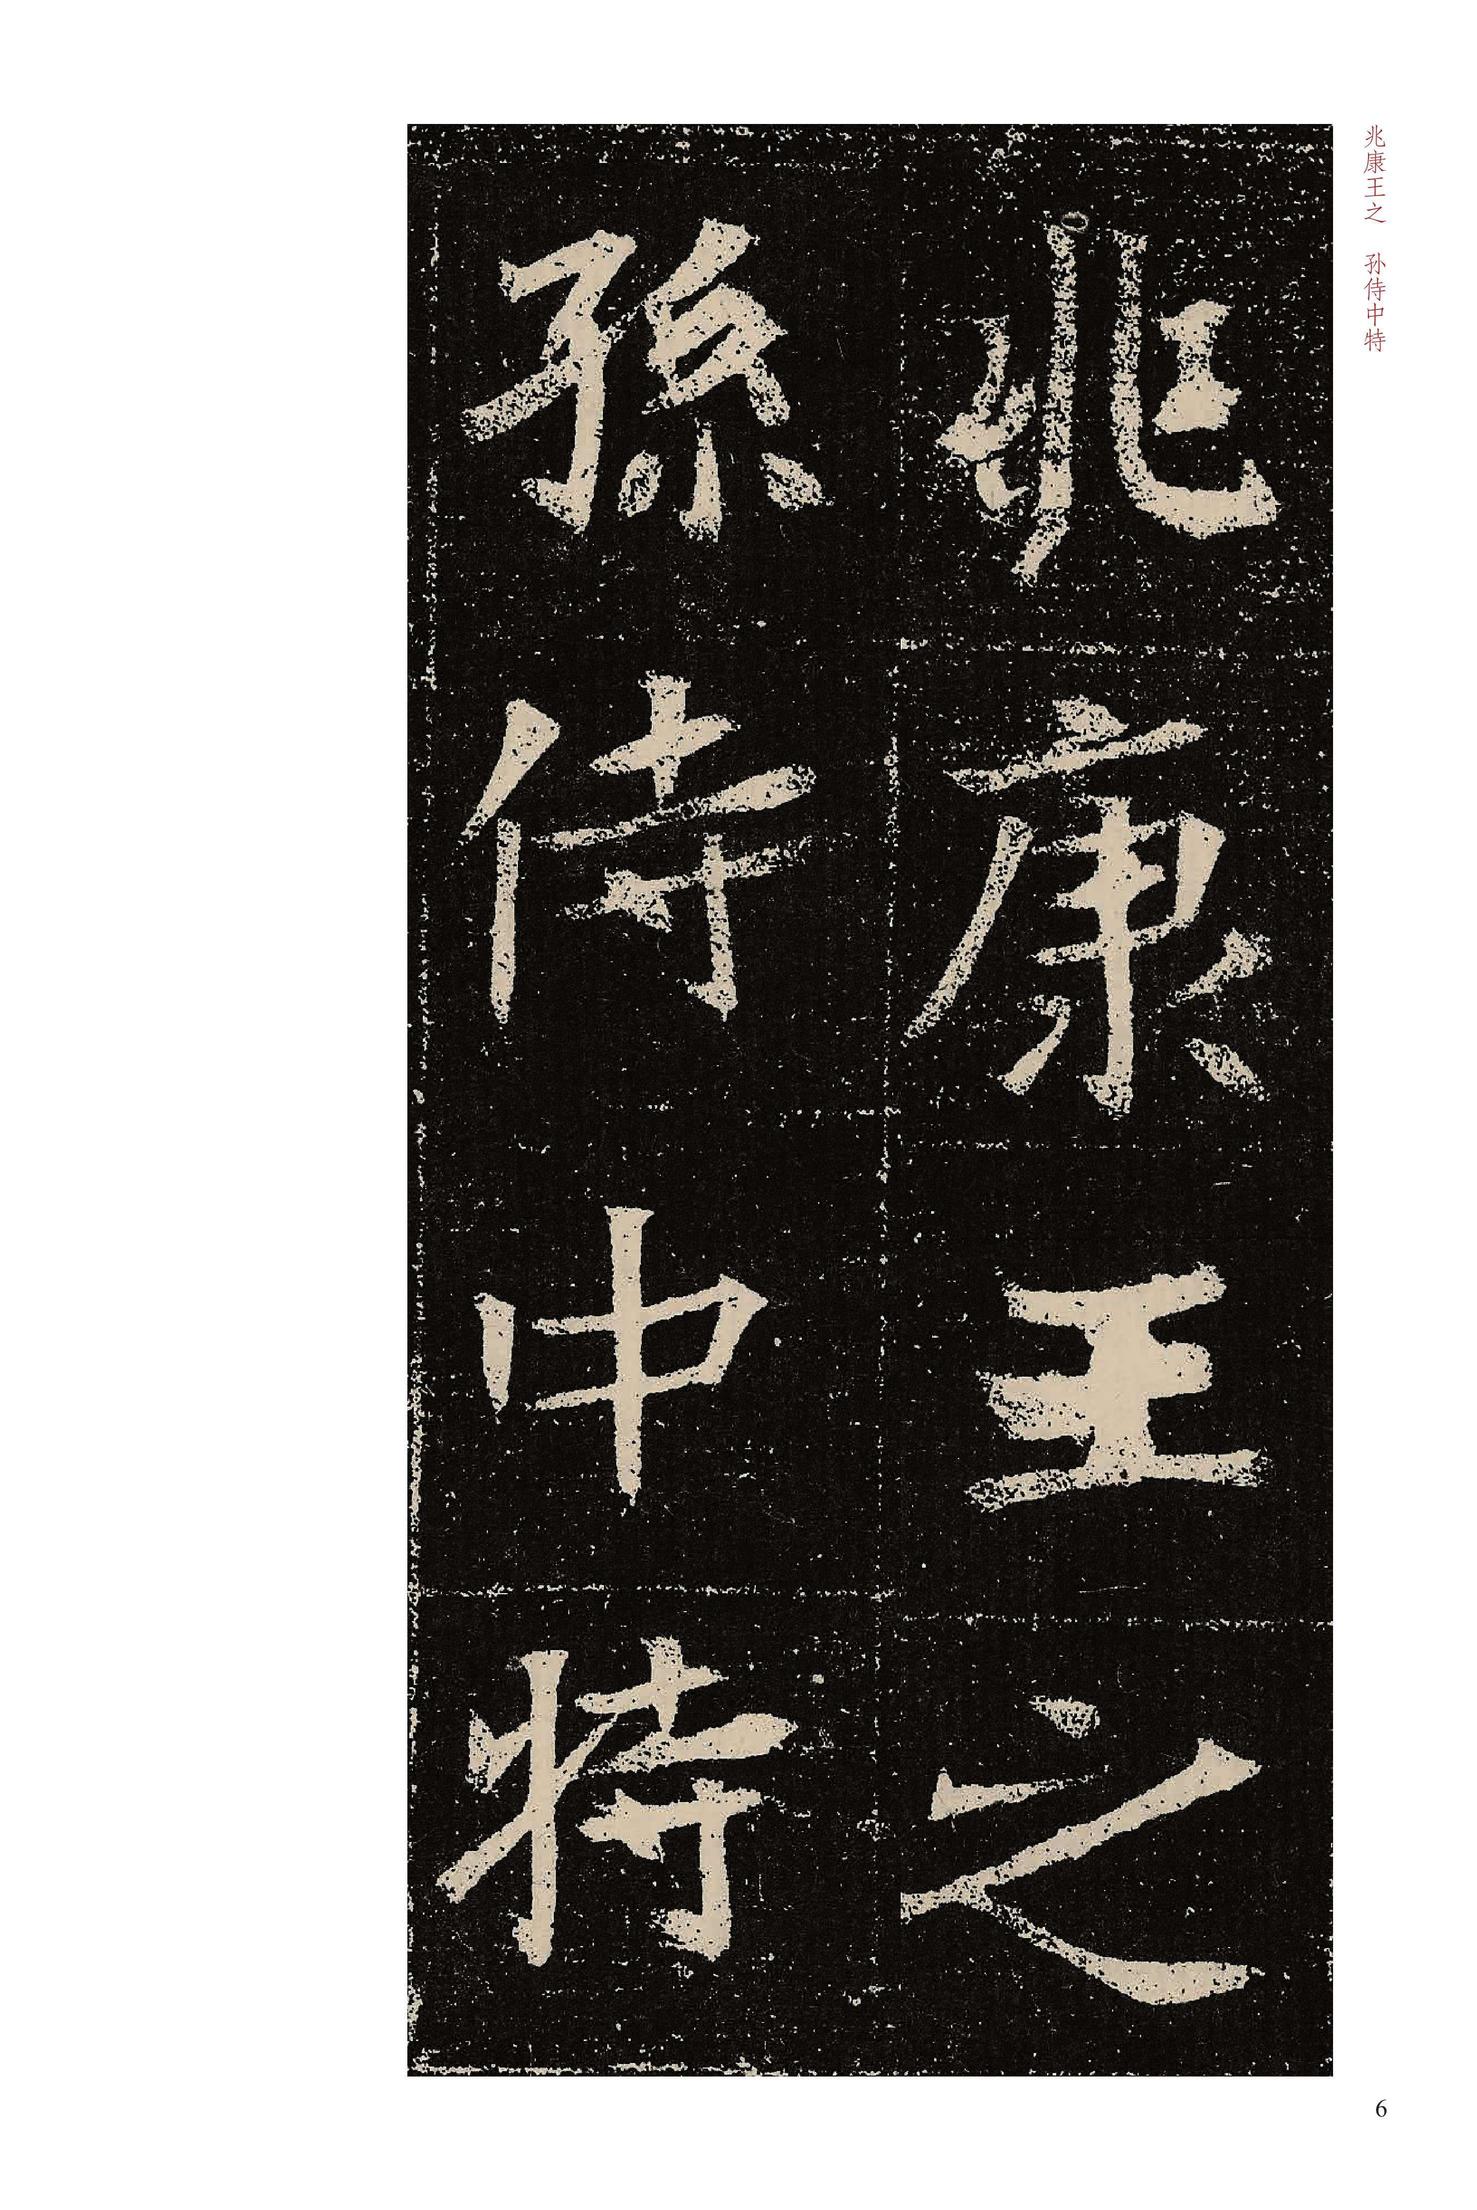 兆康王之　孙侍中特
兆康王之
孫侍中特
6